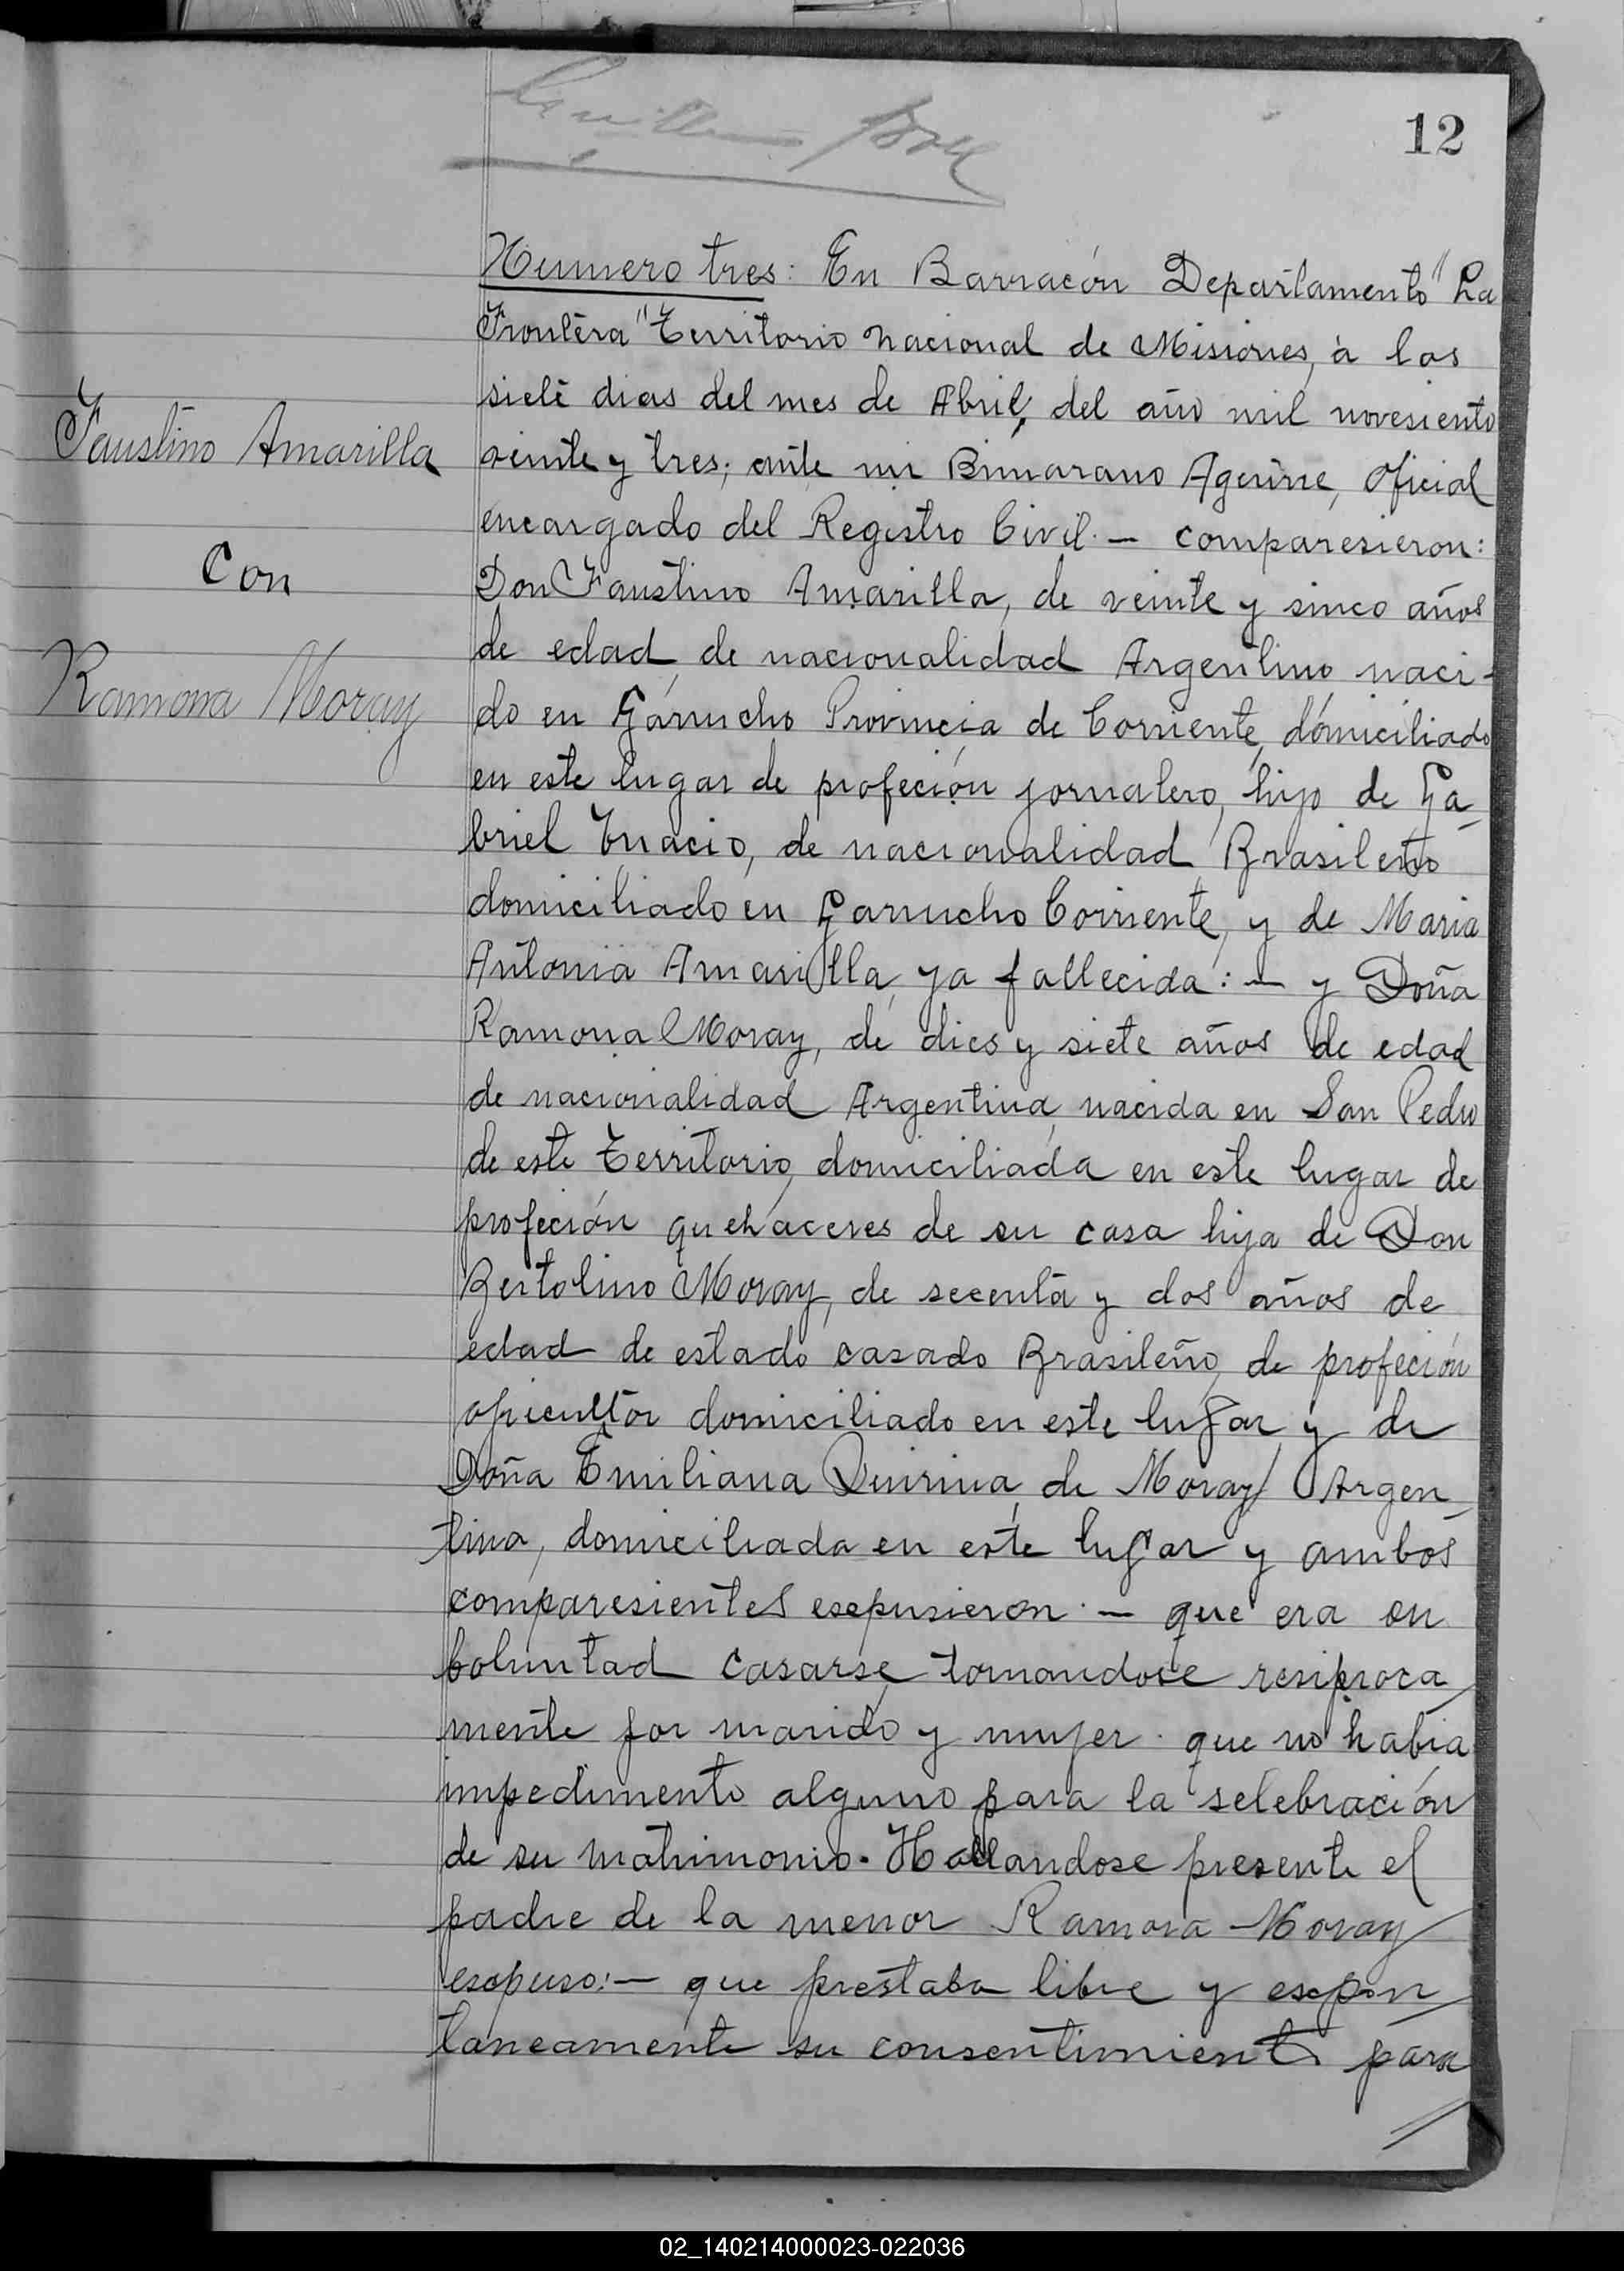 12
Numero tres: En Barracón Departamento "La
Frontera" Territorio nacional de Misiones, à los
siete dias del mes de Abril, del año mil novesiento
veinte y tres; ante mi Agerirre, Oficial
encargado del Registro Civil. — comparesieron:
Don Faustino Amarilla, de veinte y sinco años
de edad, de nacionalidad Argentino naci-
do en Garrucho Provincia de Corriente, domiciliado
en este lugar de profeción jornalero, hijo de Ga-
briel Inacio, de nacionalidad Brasileño
domiciliado en Garrucho Corriente, y de Maria
Antonia Amarilla, ya fallecida: — y Doña
Ramona Moray, de dies y siete años de edad
de nacionalidad Argentina, nacida en San Pedro
de este Territorio, domiciliada en este lugar de
profeción quehaceres de su casa hija de Don
Bertolino Moray, de secenta y dos años de
edad de estado casado Brasileño, de profeción
domiciliado en este lugar y de
Doña Emiliana Quirina, de Moray/ Argen-
tina, domiciliada en este lugar y ambos
comparesientes esepusieron. — que era su
boluntad casarse, tomandose resiproca
mente por marido y mujer. que no habia
impedimento alguno para la selebración
de su matrimonio. Hallandose presente el
padre de la menor Ramona Moray
esepuso: — que prestaba libre y esepon
taneamente su consentimiento para
Faustino Amarilla
Con
Ramona Moray
02_140214000023-022036